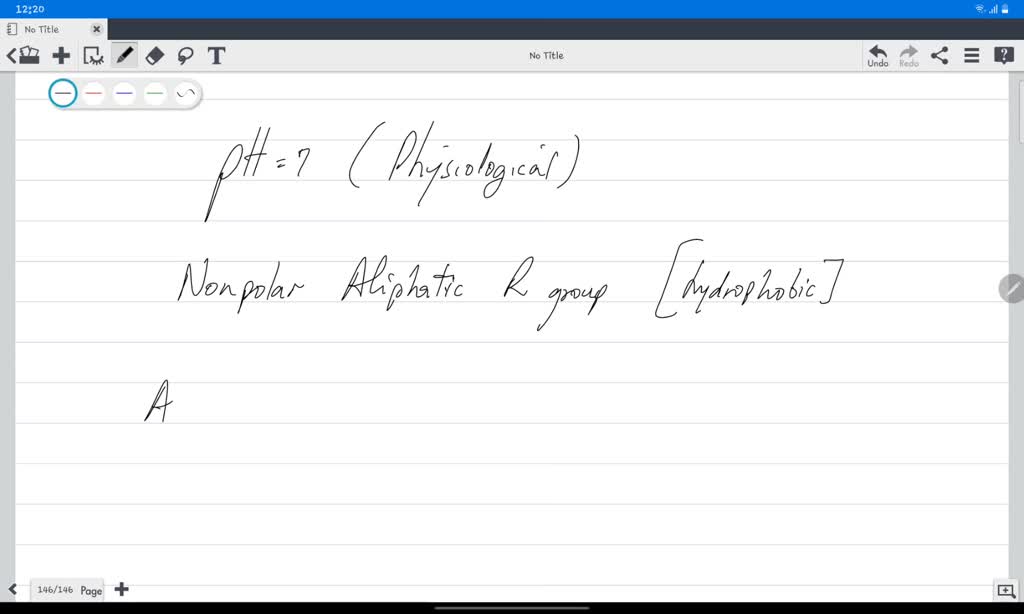 12:20
No Title
No Title
Undo
Redo
pH = 7 (Physiological)
Nonpolar Aliphatic R group [hydrophobic]
A
146/146 Page